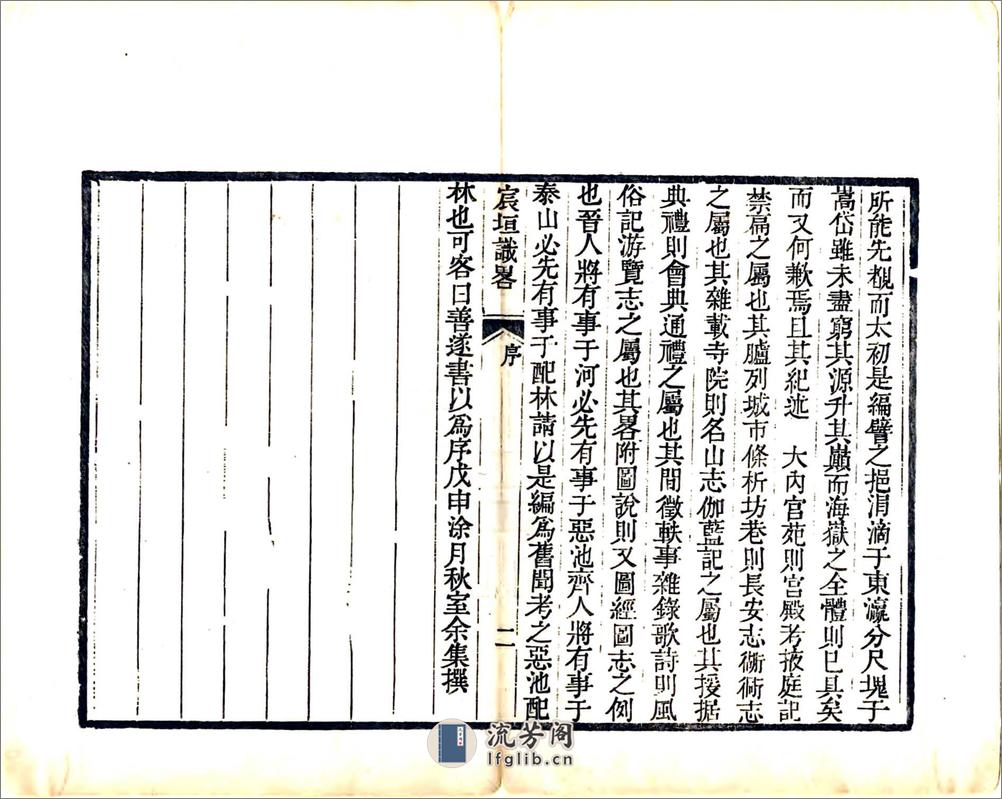 所能先覩而太初是編譬之挹涓滴于東瀛分尺塊于
嵩岱雖未盡窮其源升其巔而海嶽之全體則已具矣
而又何歉焉且其紀述　大內宮苑則宮殿考掖庭記
禁扁之屬也其臚列城市條析坊巷則長安志衚衕志
之屬也其雜載寺院則名山志伽藍記之屬也其援据
典禮則會典通禮之屬也其間徵軼事雜錄歌詩則風
俗記游覽志之屬也其畧附圖說則又圖經圖志之例
也晉人將有事于河必先有事于惡池齊人將有事于
泰山必先有事于配林請以是編爲舊聞考之惡池配
宸垣識畧　序　二
林也可客曰善遂書以爲序戊申涂月秋室余集撰
流芳阁
lfglib.cn